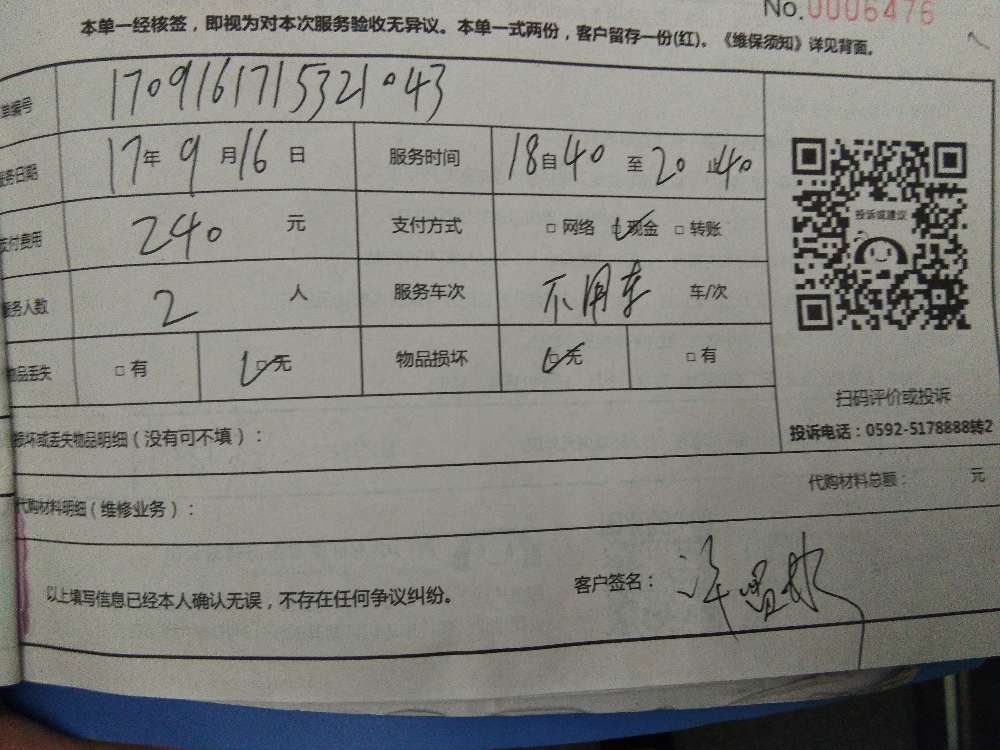 No.0006476
本单一经核签，即视为对本次服务验收无异议。本单一式两份，客户留存一份(红)。《维保须知》详见背面。
单编号 1709161715321043
服务日期 17年 9月16日 服务时间 18自40至20止40
支付费用 240 元 支付方式 □ 网络 ☑ 现金 □ 转账
投诉或建议
服务人数 2 人 服务车次 不用车 车/次
物品丢失 □ 有 ☑ 无 物品损坏 ☑ 无 □ 有
扫码评价或投诉
投诉电话：0592-5178888转2
损坏或丢失物品明细（没有可不填）：
代购材料明细（维修业务）： 代购材料总额： 元
以上填写信息已经本人确认无误，不存在任何争议纠纷。 客户签名：